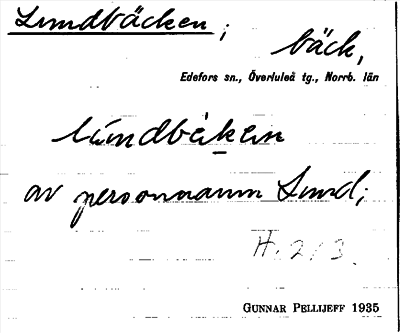 Lundbäcken;
bäck,
Edefors sn., Överluleå tg., Norrb. län
lúndbäk̲en
av personnamn Lund;
H. 2/3.
GUNNAR PELLIJEFF 1935